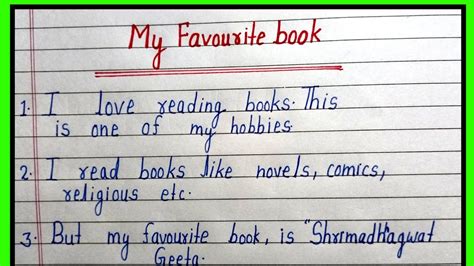 My Favourite book
1. I love reading books. This
is one of my hobbies.
2. I read books like novels, comics,
religious etc.
3. But my favourite book, is "Shrimadhagwat
Geeta.